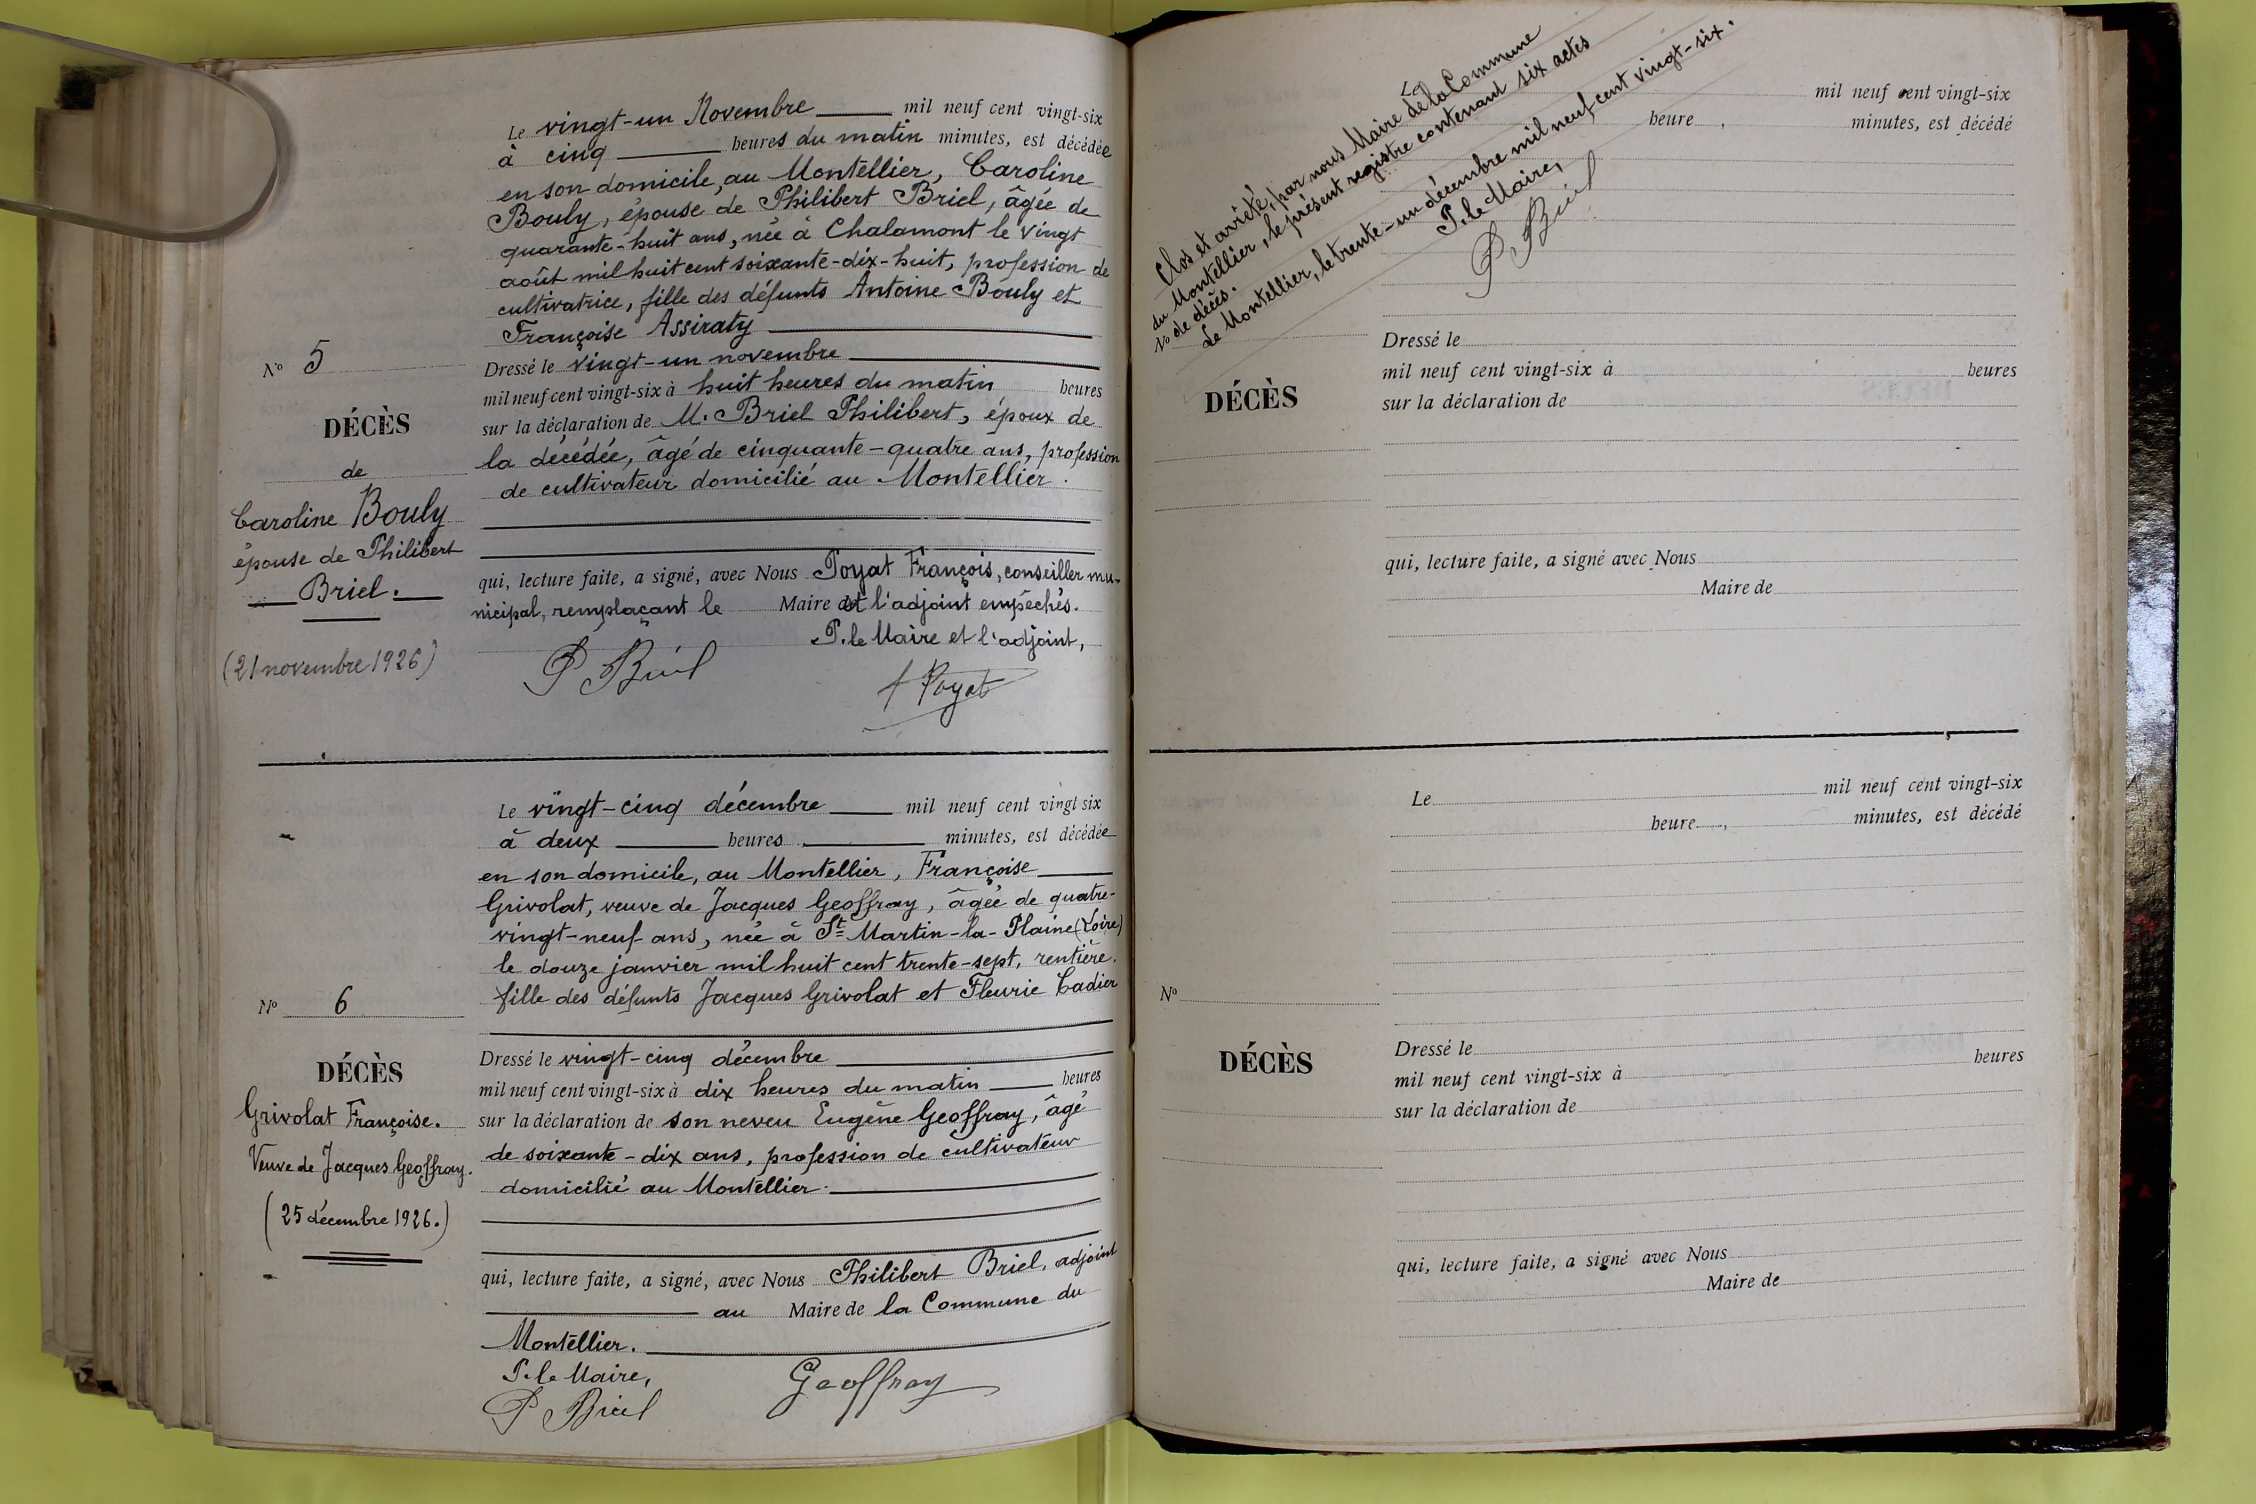 Le vingt-un Novembre mil neuf cent vingt-six
à cinq heures du matin minutes, est décédée
en son domicile, au Montellier, Caroline
Bouly, épouse de Philibert Briel, âgée de
quarante-huit ans, née à Chalamont le vingt
août mil huit cent soixante-dix-huit, profession de
cultivatrice, fille des défunts Antoine Bouly et
Françoise Assiraty
Nº 5
DÉCÈS
de
Caroline Bouly
épouse de Philibert
Briel.
(21 novembre 1926)
Dressé le vingt-un novembre
mil neuf cent vingt-six à huit heures du matin heures
sur la déclaration de M. Briel Philibert, époux de
la décédée, âgé de cinquante-quatre ans, profession
de cultivateur domicilié au Montellier.
qui, lecture faite, a signé, avec Nous Poyat François, conseiller mu-
nicipal, remplaçant le Maire et l'adjoint empêchés.
P. le Maire et l'adjoint,
P Briel
f Poyat
Le vingt-cinq décembre mil neuf cent vingt six
à deux heures minutes, est décédée
en son domicile, au Montellier, Françoise
Grivolat, veuve de Jacques Geoffray, âgée de quatre-
vingt-neuf ans, née à St Martin-la-Plaine (Loire)
le douze janvier mil huit cent trente-sept, rentière.
fille des défunts Jacques Grivolat et Fleurie Cadier
Nº 6
DÉCÈS
Grivolat Françoise.
Veuve de Jacques Geoffray.
(25 décembre 1926.)
Dressé le vingt-cinq décembre
mil neuf cent vingt-six à dix heures du matin heures
sur la déclaration de son neveu Eugène Geoffray, âgé
de soixante-dix ans, profession de cultivateur
domicilié au Montellier.
qui, lecture faite, a signé, avec Nous Philibert Briel, adjoint
au Maire de la Commune du
Montellier.
P. le Maire,
P Briel
Geoffray
Clos et arrêté, par nous Maire de la Commune
du Montellier, le présent registre contenant six actes
de décès.
Le Montellier, le trente-un décembre mil neuf cent vingt-six.
P. le Maire,
P Briel
Le mil neuf cent vingt-six
heure, minutes, est décédé
Nº
DÉCÈS
Dressé le
mil neuf cent vingt-six à heures
sur la déclaration de
qui, lecture faite, a signé avec Nous
Maire de
Le mil neuf cent vingt-six
heure, minutes, est décédé
Nº
DÉCÈS
Dressé le
mil neuf cent vingt-six à heures
sur la déclaration de
qui, lecture faite, a signé avec Nous
Maire de